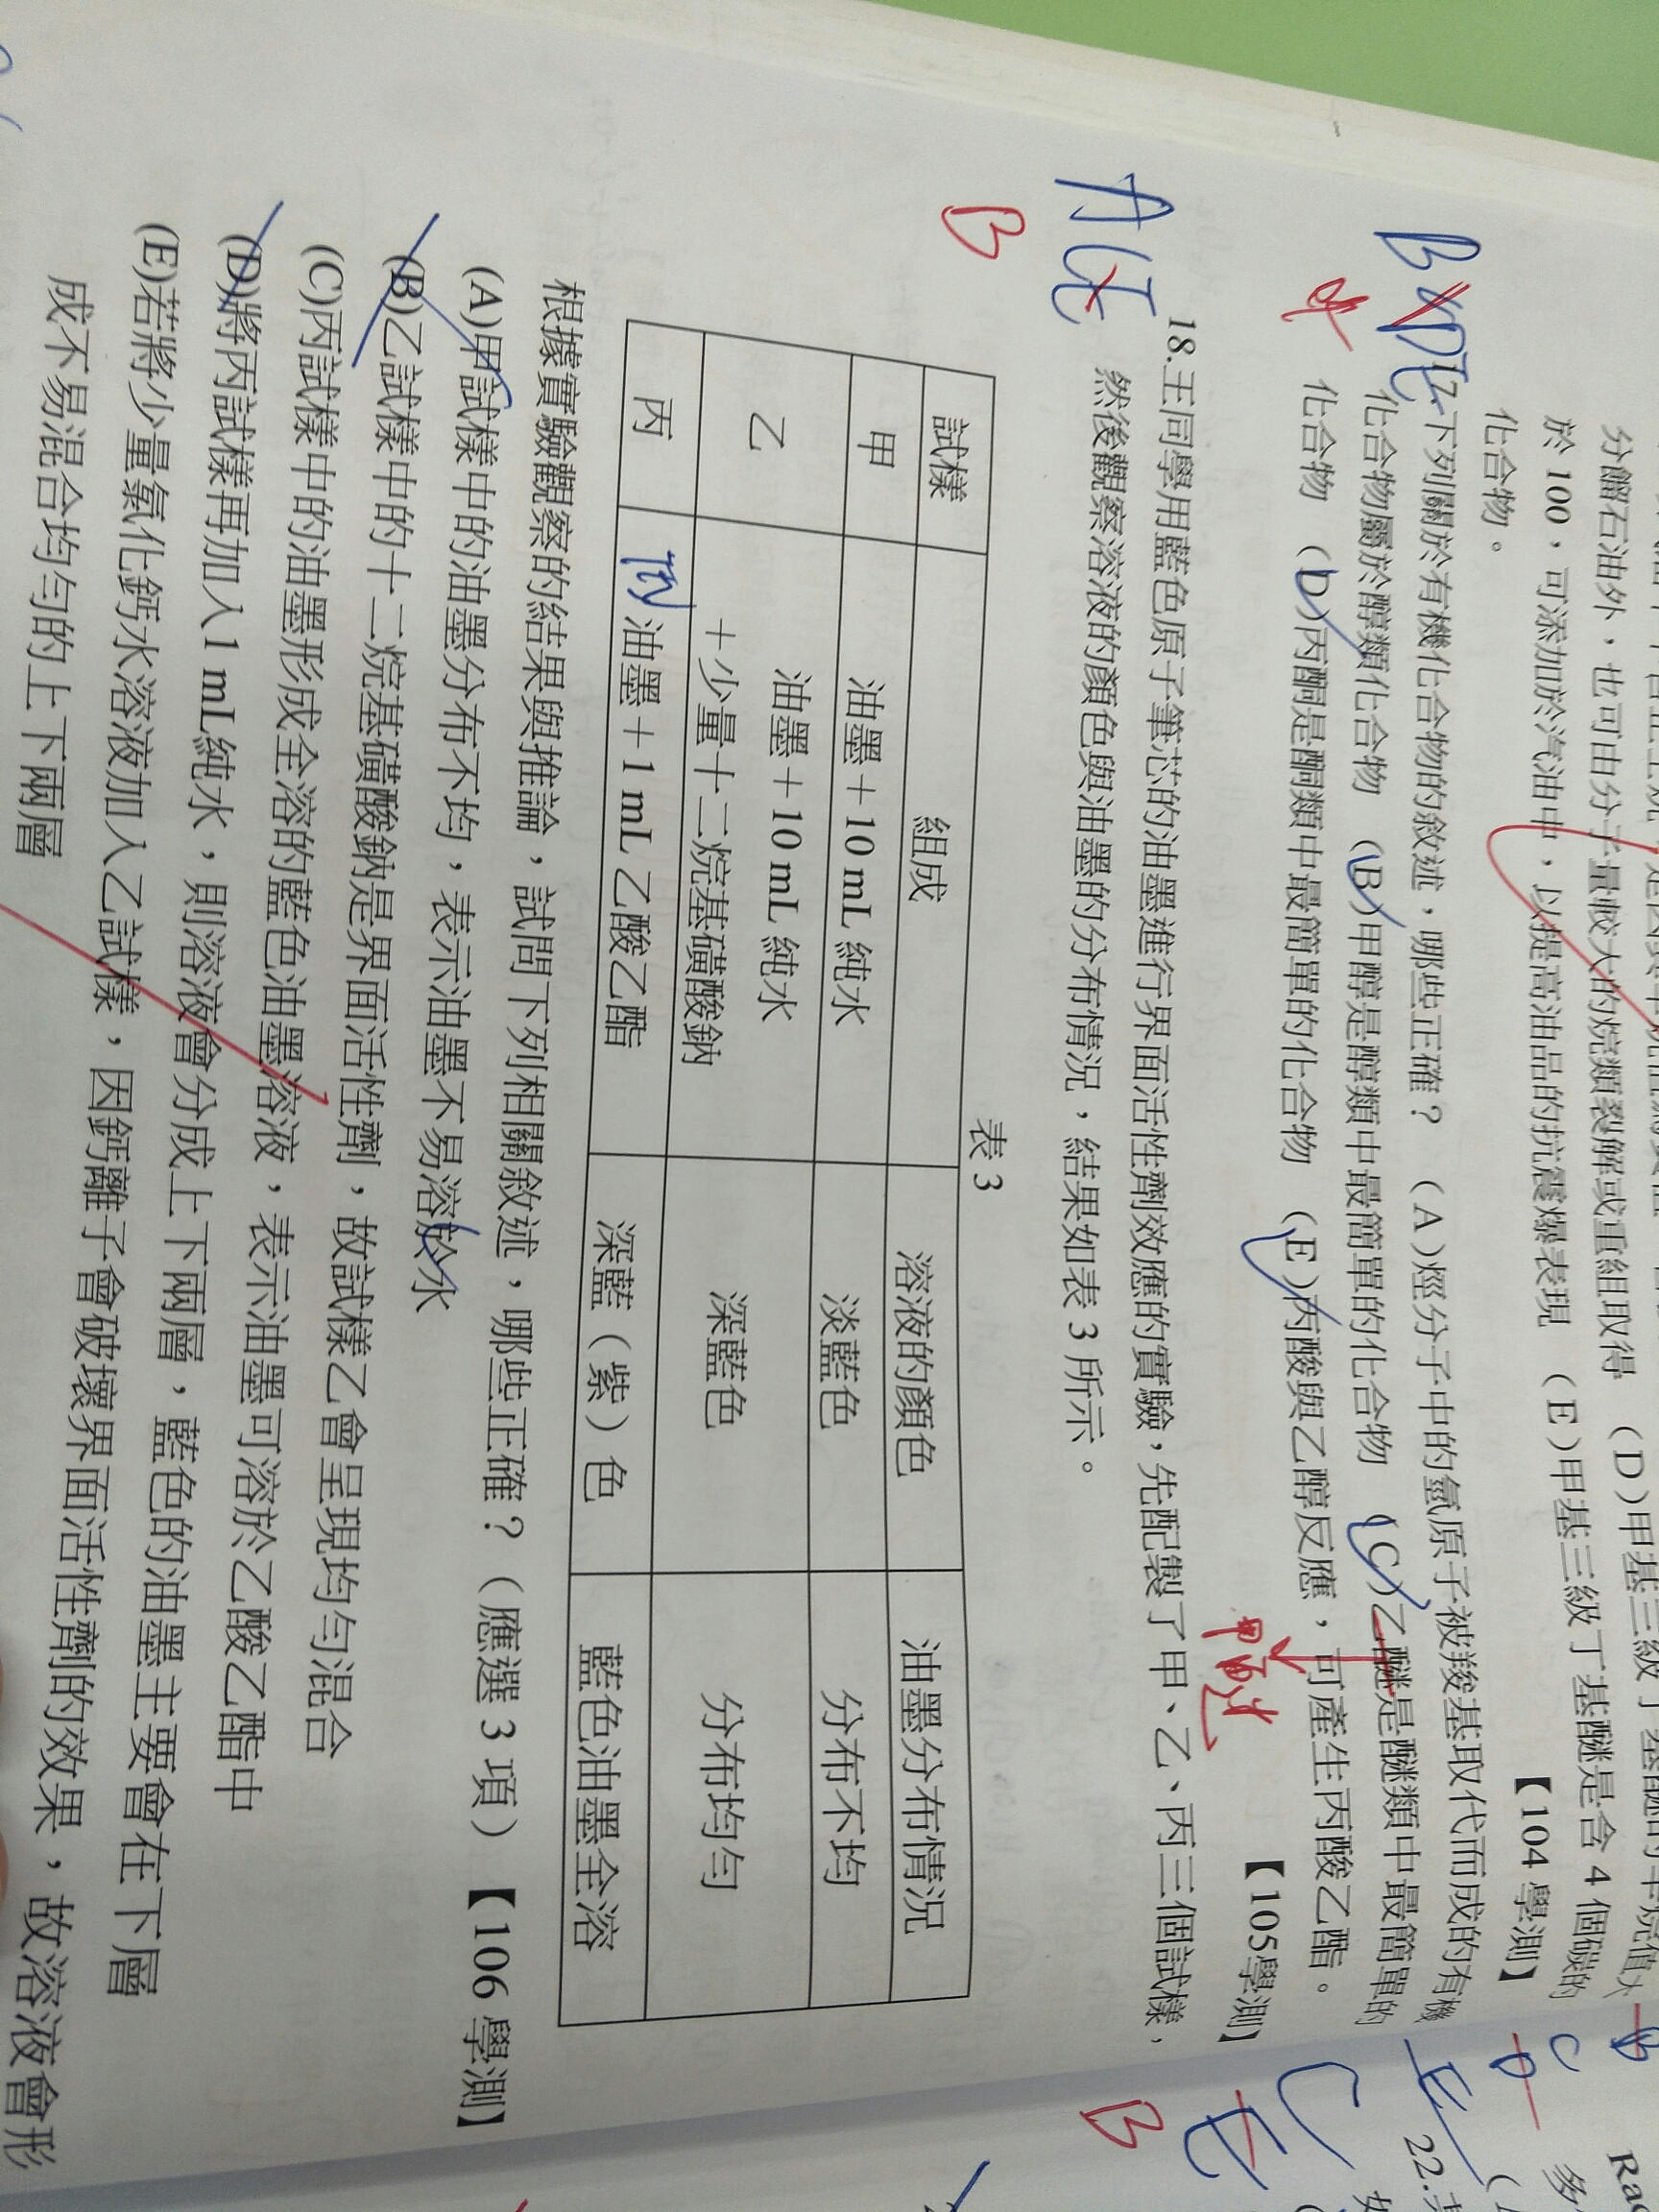 分餾石油外，也可由分子量較大的烷類裂解或重組取得 （D）甲基三級丁基醚的辛烷值大
於 100，可添加於汽油中，以提高油品的抗震爆表現 （E）甲基三級丁基醚是含 4 個碳的
化合物。
【104 學測】
下列關於有機化合物的敘述，哪些正確？ （A）烴分子中的氫原子被羧基取代而成的有機
化合物屬於醇類化合物 （B）甲醇是醇類中最簡單的化合物 （C）乙醚是醚類中最簡單的
化合物 （D）丙酮是酮類中最簡單的化合物 （E）丙酸與乙醇反應，可產生丙酸乙酯。
【105學測】
甲醚
18.王同學用藍色原子筆芯的油墨進行界面活性劑效應的實驗，先配製了甲、乙、丙三個試樣，
然後觀察溶液的顏色與油墨的分布情況，結果如表 3 所示。
ACE
B
表 3
試樣 組成 溶液的顏色 油墨分布情況
甲 油墨＋10 mL 純水 淡藍色 分布不均
乙 油墨＋10 mL 純水
＋少量十二烷基磺酸鈉 深藍色 分布均勻
丙 油墨＋1 mL 乙酸乙酯 深藍（紫）色 藍色油墨全溶
根據實驗觀察的結果與推論，試問下列相關敘述，哪些正確？（應選 3 項）【106 學測】
(A)甲試樣中的油墨分布不均，表示油墨不易溶於水
(B)乙試樣中的十二烷基磺酸鈉是界面活性劑，故試樣乙會呈現均勻混合
(C)丙試樣中的油墨形成全溶的藍色油墨溶液，表示油墨可溶於乙酸乙酯中
(D)將丙試樣再加入1 mL純水，則溶液會分成上下兩層，藍色的油墨主要會在下層
(E)若將少量氯化鈣水溶液加入乙試樣，因鈣離子會破壞界面活性劑的效果，故溶液會形
成不易混合均勻的上下兩層
B
C
D
E
C
E
B
22.